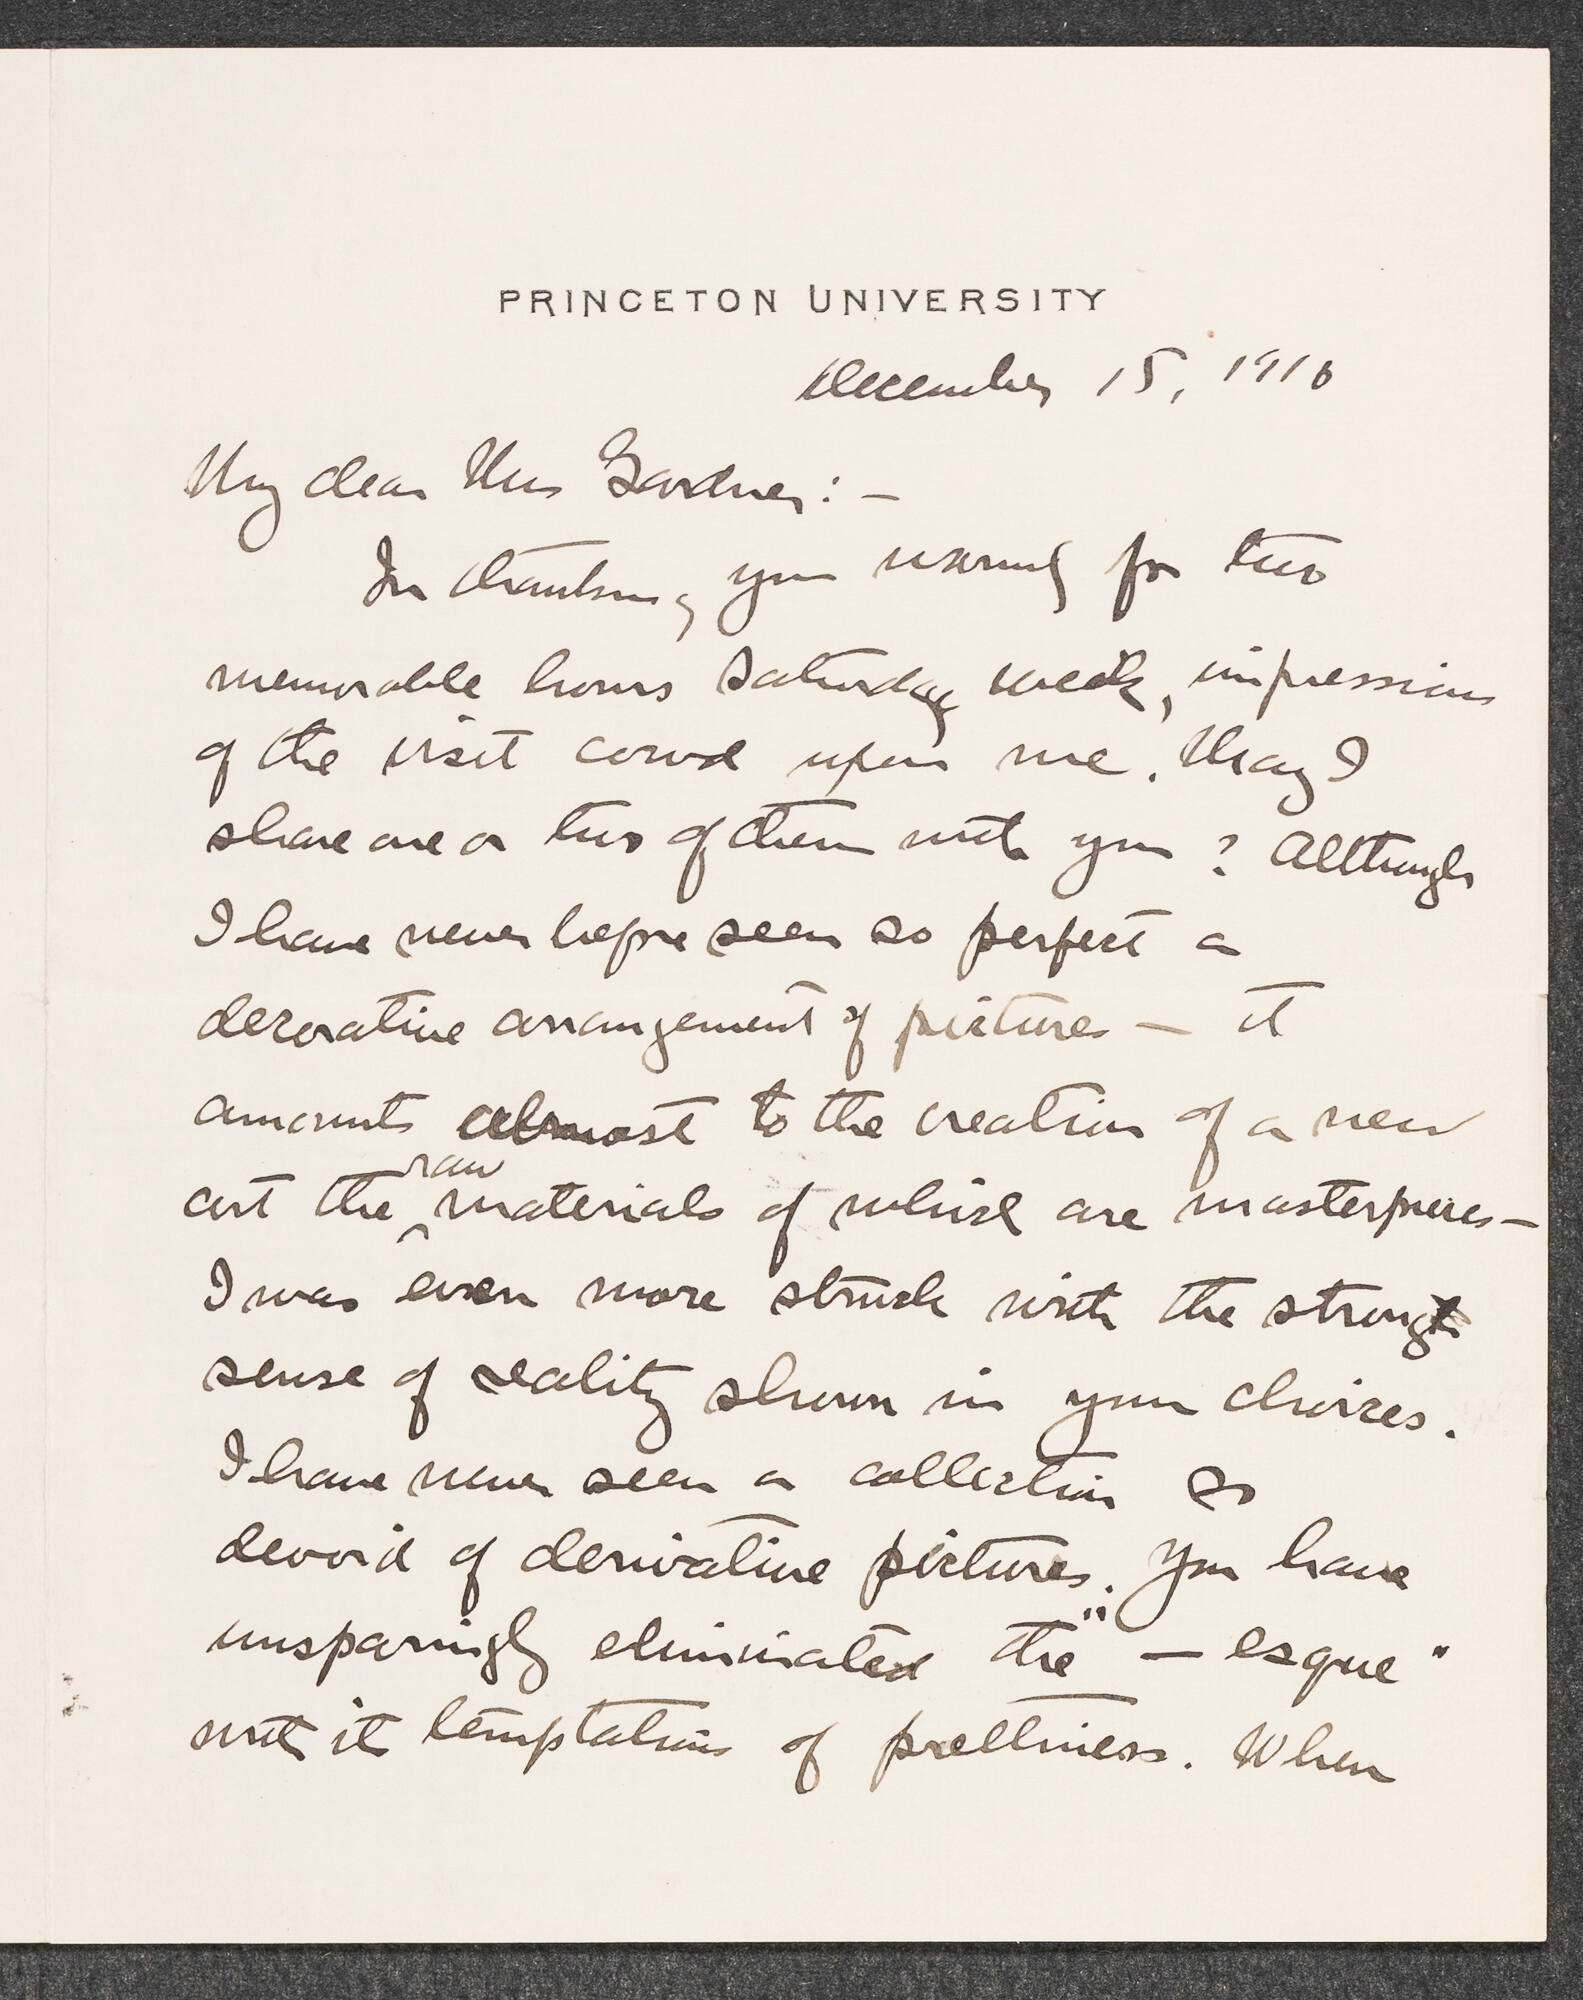 PRINCETON UNIVERSITY
December 15, 1910
My dear Mrs Gardner: —
In thanking you warmly for two
memorable hours Saturday week, impressions
of the visit crowd upon me. May I
share one or two of them with you? Although
I have never before seen so perfect a
decorative arrangement of pictures — it
amounts almost to the creation of a new
art the raw materials of which are masterpieces —
I was even more struck with the strong
sense of reality shown in your choices.
I have never seen a collection so
devoid of derivative pictures. You have
unsparingly eliminated the "— esque"
with its temptations of prettiness. When